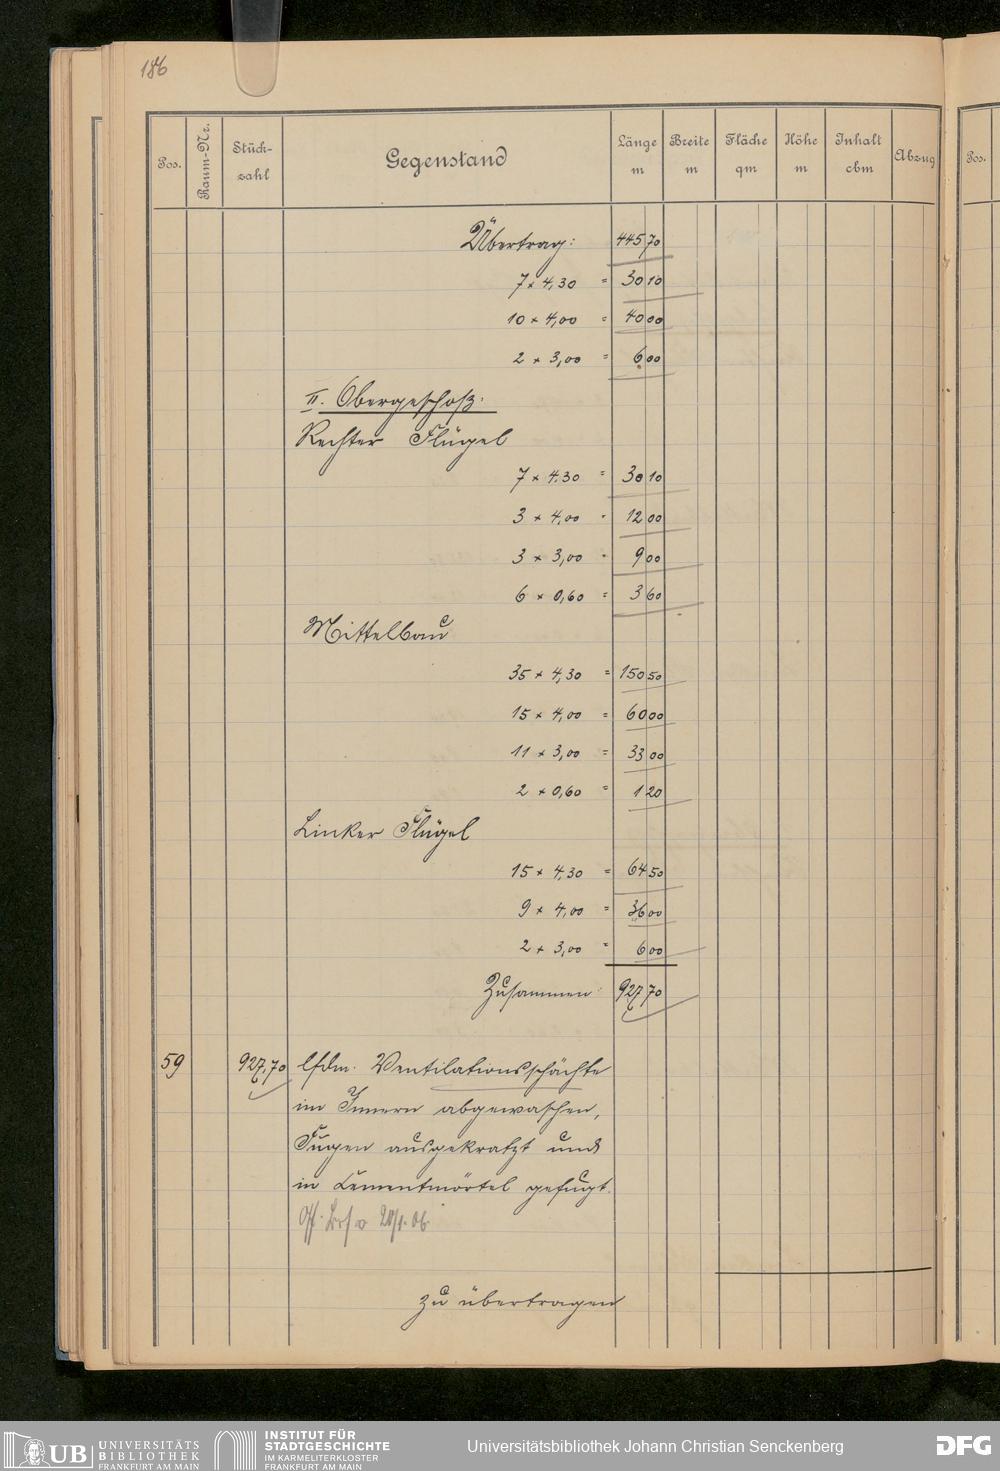 186
Pos. Raum-Nr. Stück-zahl Gegenstand Länge m Breite m Fläche qm Höhe m Inhalt cbm Abzug
Pos.
Übertrag: 445 70
7 × 4,30 = 30 10
10 × 4,00 = 40 00
2 × 3,00 = 6 00
II. Obergeschoß:
Rechter Flügel
7 × 4.30 = 30 10
3 × 4,00 = 12 00
3 × 3,00 = 9 00
6 × 0,60 = 3 60
Mittelbau
35 × 4,30 = 150 50
15 × 4,00 = 60 00
11 × 3,00 = 33 00
2 × 0,60 = 1 20
Linker Flügel
15 × 4,30 = 64 50
9 × 4,00 = 36 00
2 × 3,00 = 6 00
Zusammen: 927 70
59 927,70 lfdm. Ventilationsschächte
im Innern abgewaschen,
Fugen ausgekratzt und
in Cementmörtel gefugt.
20/1.06
zu übertragen
UB UNIVERSITÄTS
BIBLIOTHEK
FRANKFURT AM MAIN
INSTITUT FÜR
STADTGESCHICHTE
IM KARMELITERKLOSTER
FRANKFURT AM MAIN
Universitätsbibliothek Johann Christian Senckenberg
DFG